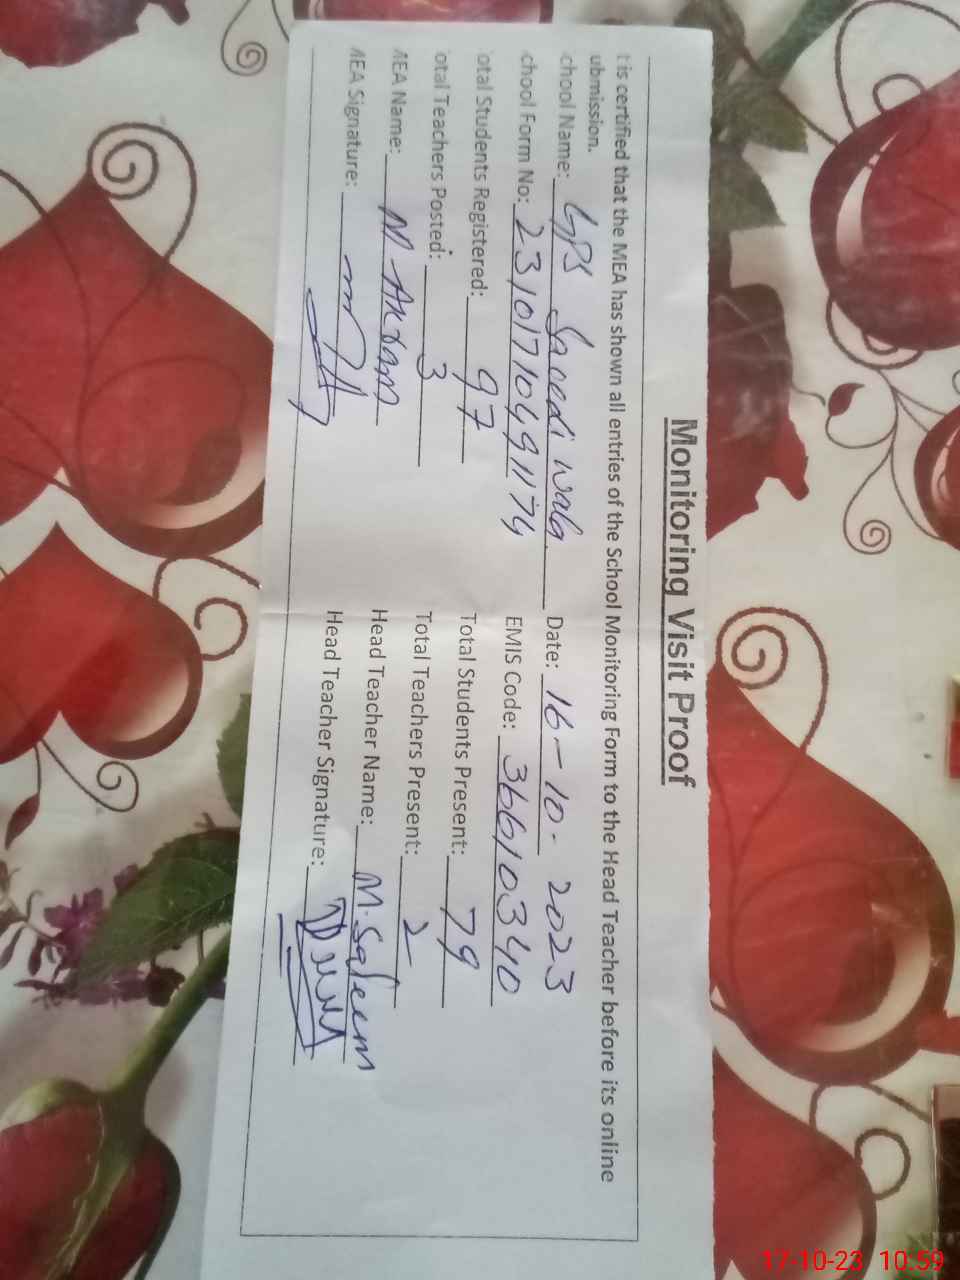 Monitoring Visit Proof
t is certified that the MEA has shown all entries of the School Monitoring Form to the Head Teacher before its online
ubmission.
chool Name: GPS Saeedi wala Date: 16-10-2023
chool Form No: 23101710491174 EMIS Code: 36610340
otal Students Registered: 97 Total Students Present: 79
otal Teachers Posted: 3 Total Teachers Present: 2
MEA Name: M Akram Head Teacher Name: M. Saleem
MEA Signature: Head Teacher Signature:
17-10-23 10:59